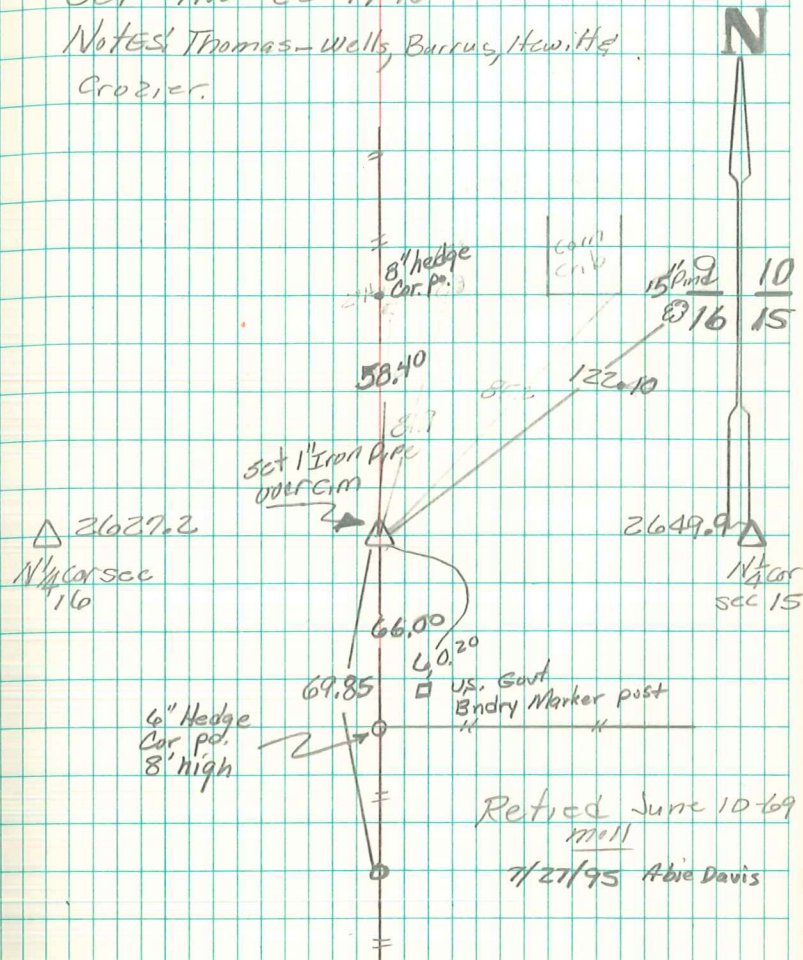 Notes: Thomas-Wells, Barrus, Hewitt &
Crozier.
N
8" hedge
Cor. Po.
corn
crib
15" Pine
9 | 10
16 | 15
58.40
122.10
81.9
set 1" Iron Pipe
over cim
2627.2
N 1/4 cor sec
16
2649.9
N 1/4 cor
sec 15
66.00
60.20
69.85
U.S. Govt
Bndry Marker post
6" Hedge
Cor po.
8' high
Retied June 10-69
moll
7/27/95 Abie Davis